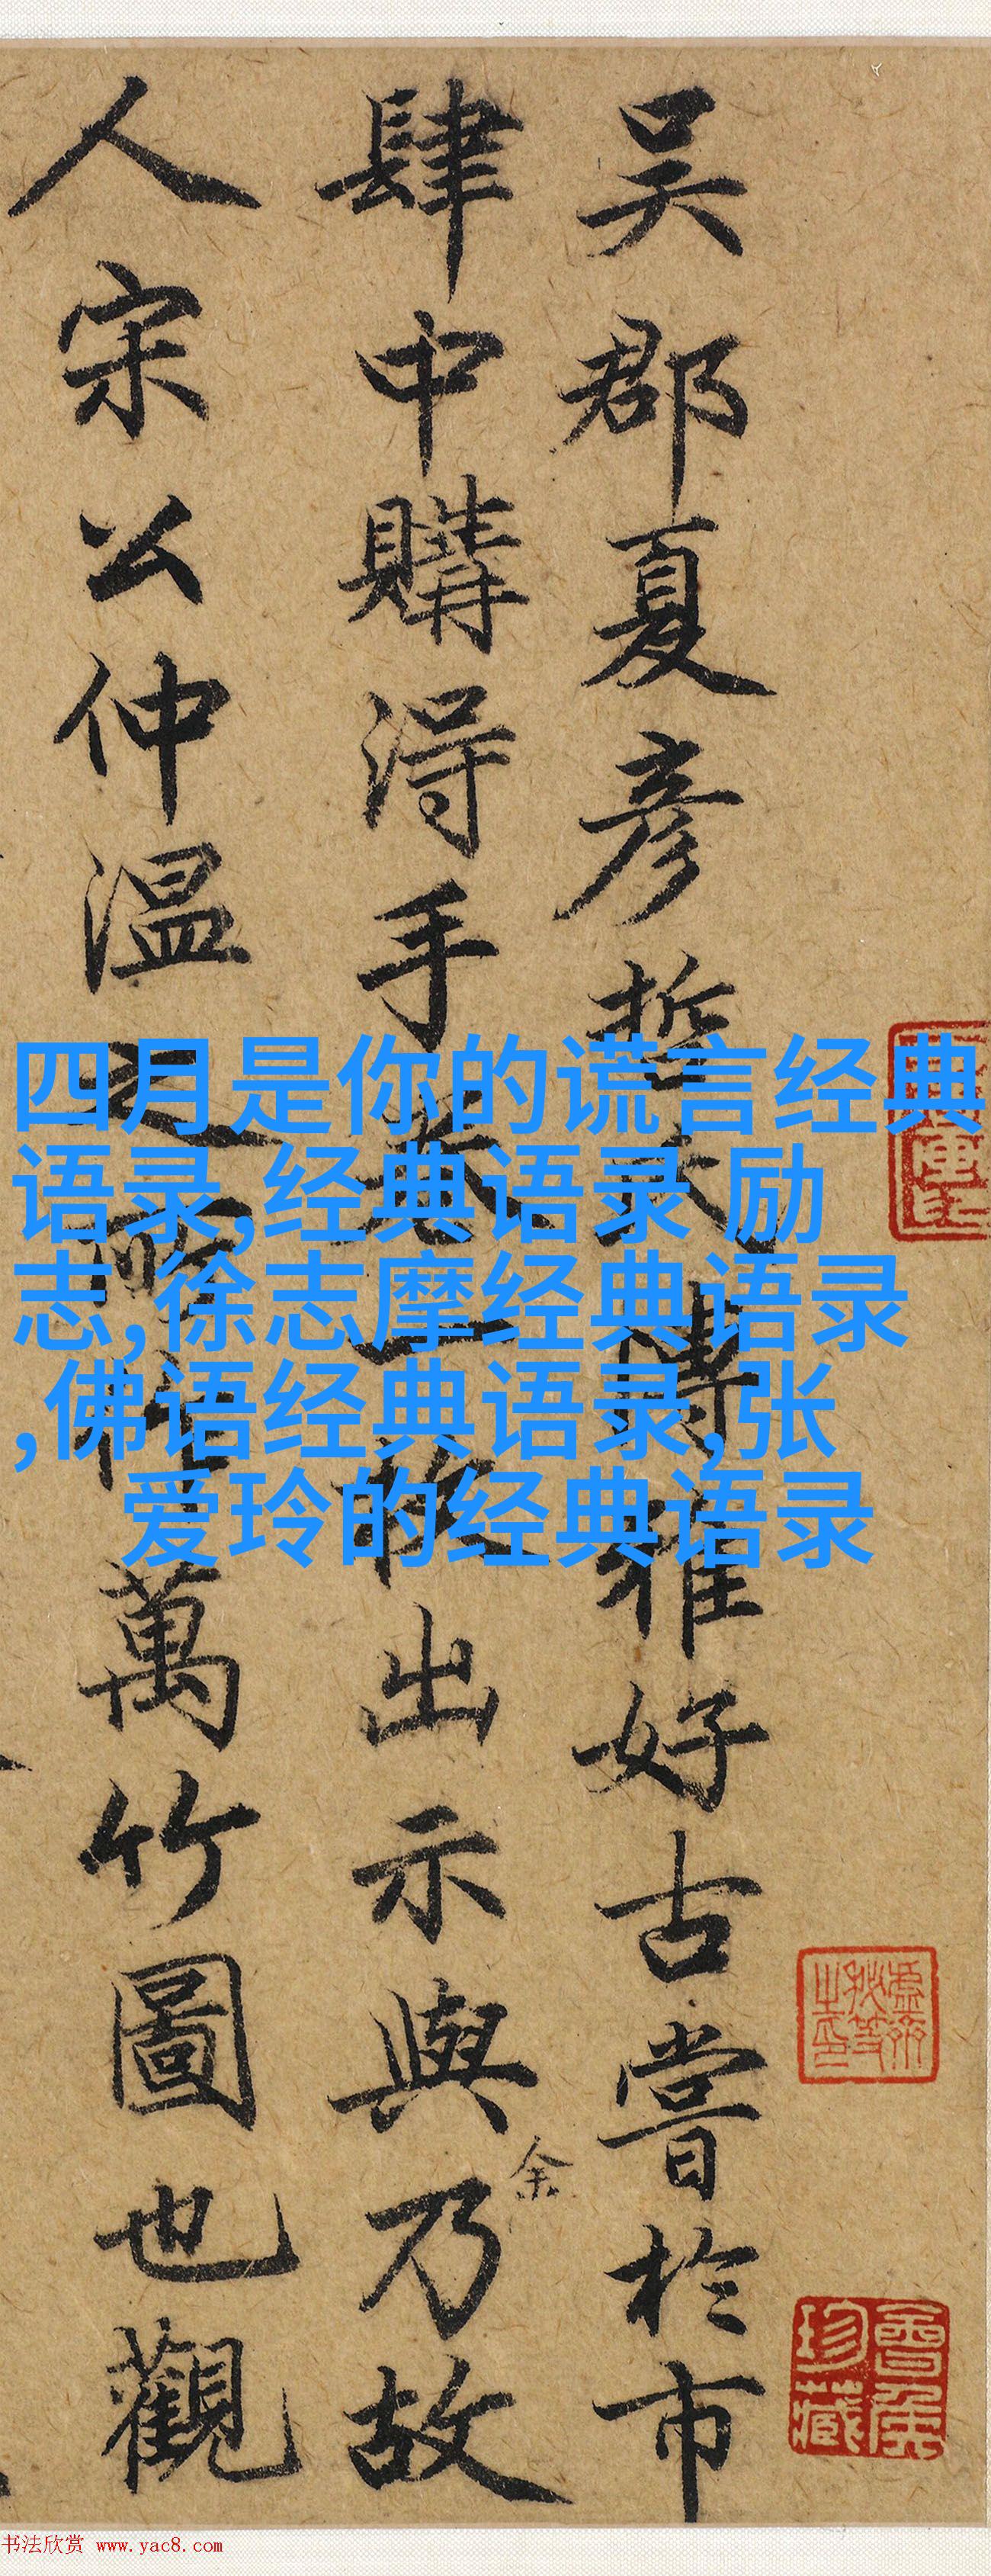 吴郡夏彦哲夫博雅好古嘗於市
肆中購得手卷一出示與乃故
余
人宋公仲温之所作萬竹圖也觀
四月是你的谎言经典
语录,经典语录 励
志,徐志摩经典语录
,佛语经典语录,张
爱玲的经典语录
书法欣赏 www.yac8.com